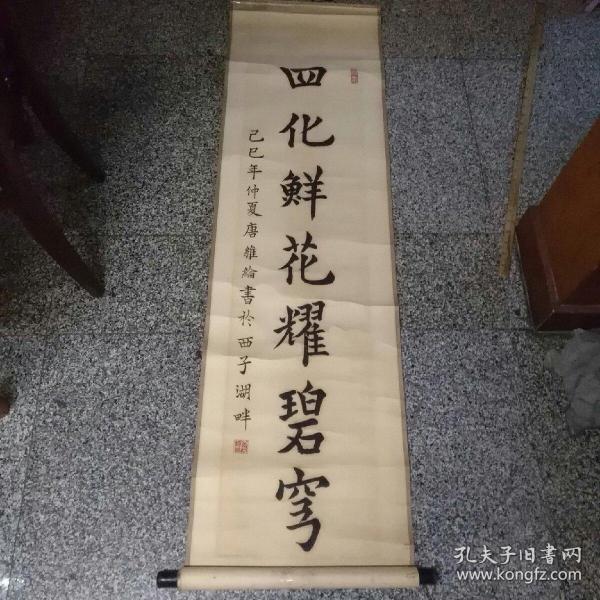 四化鲜花耀碧穹
己巳年仲夏唐雖綸書於西子湖畔
孔夫子旧書网
www.kongfz.com